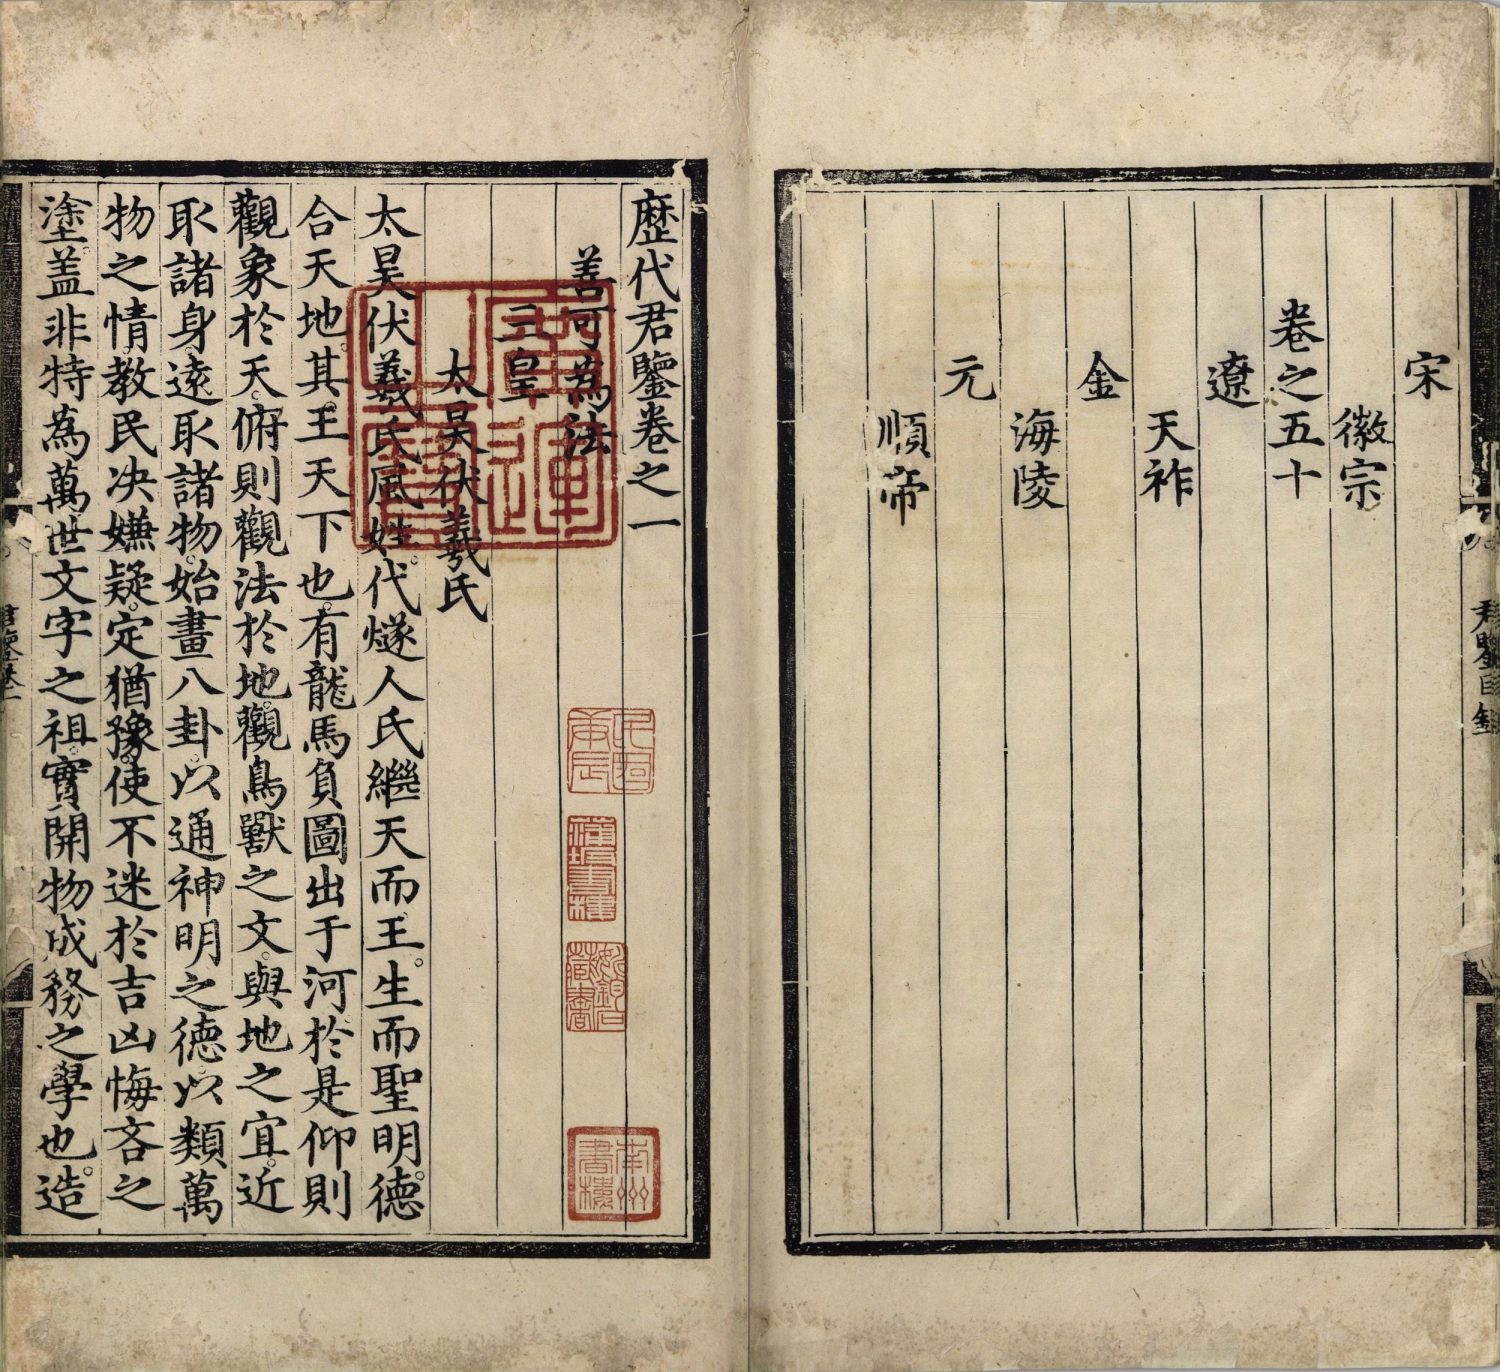 宋
徽宗
卷之五十
遼
天祚
金
海陵
元
順帝
歷代君鑒卷之一
善可為法
三皇
太昊伏羲氏
太昊伏羲氏風姓。代燧人氏繼天而王。生而聖明。德
合天地。其王天下也。有龍馬負圖出于河於是仰則
觀象於天。俯則觀法於地。觀鳥獸之文。與地之宜。近
取諸身。遠取諸物。始畫八卦。以通神明之德。以類萬
物之情。教民决嫌疑。定猶豫。使不迷於吉凶悔吝之
塗。蓋非特為萬世文字之祖。實開物成務之學也。造
南州書樓